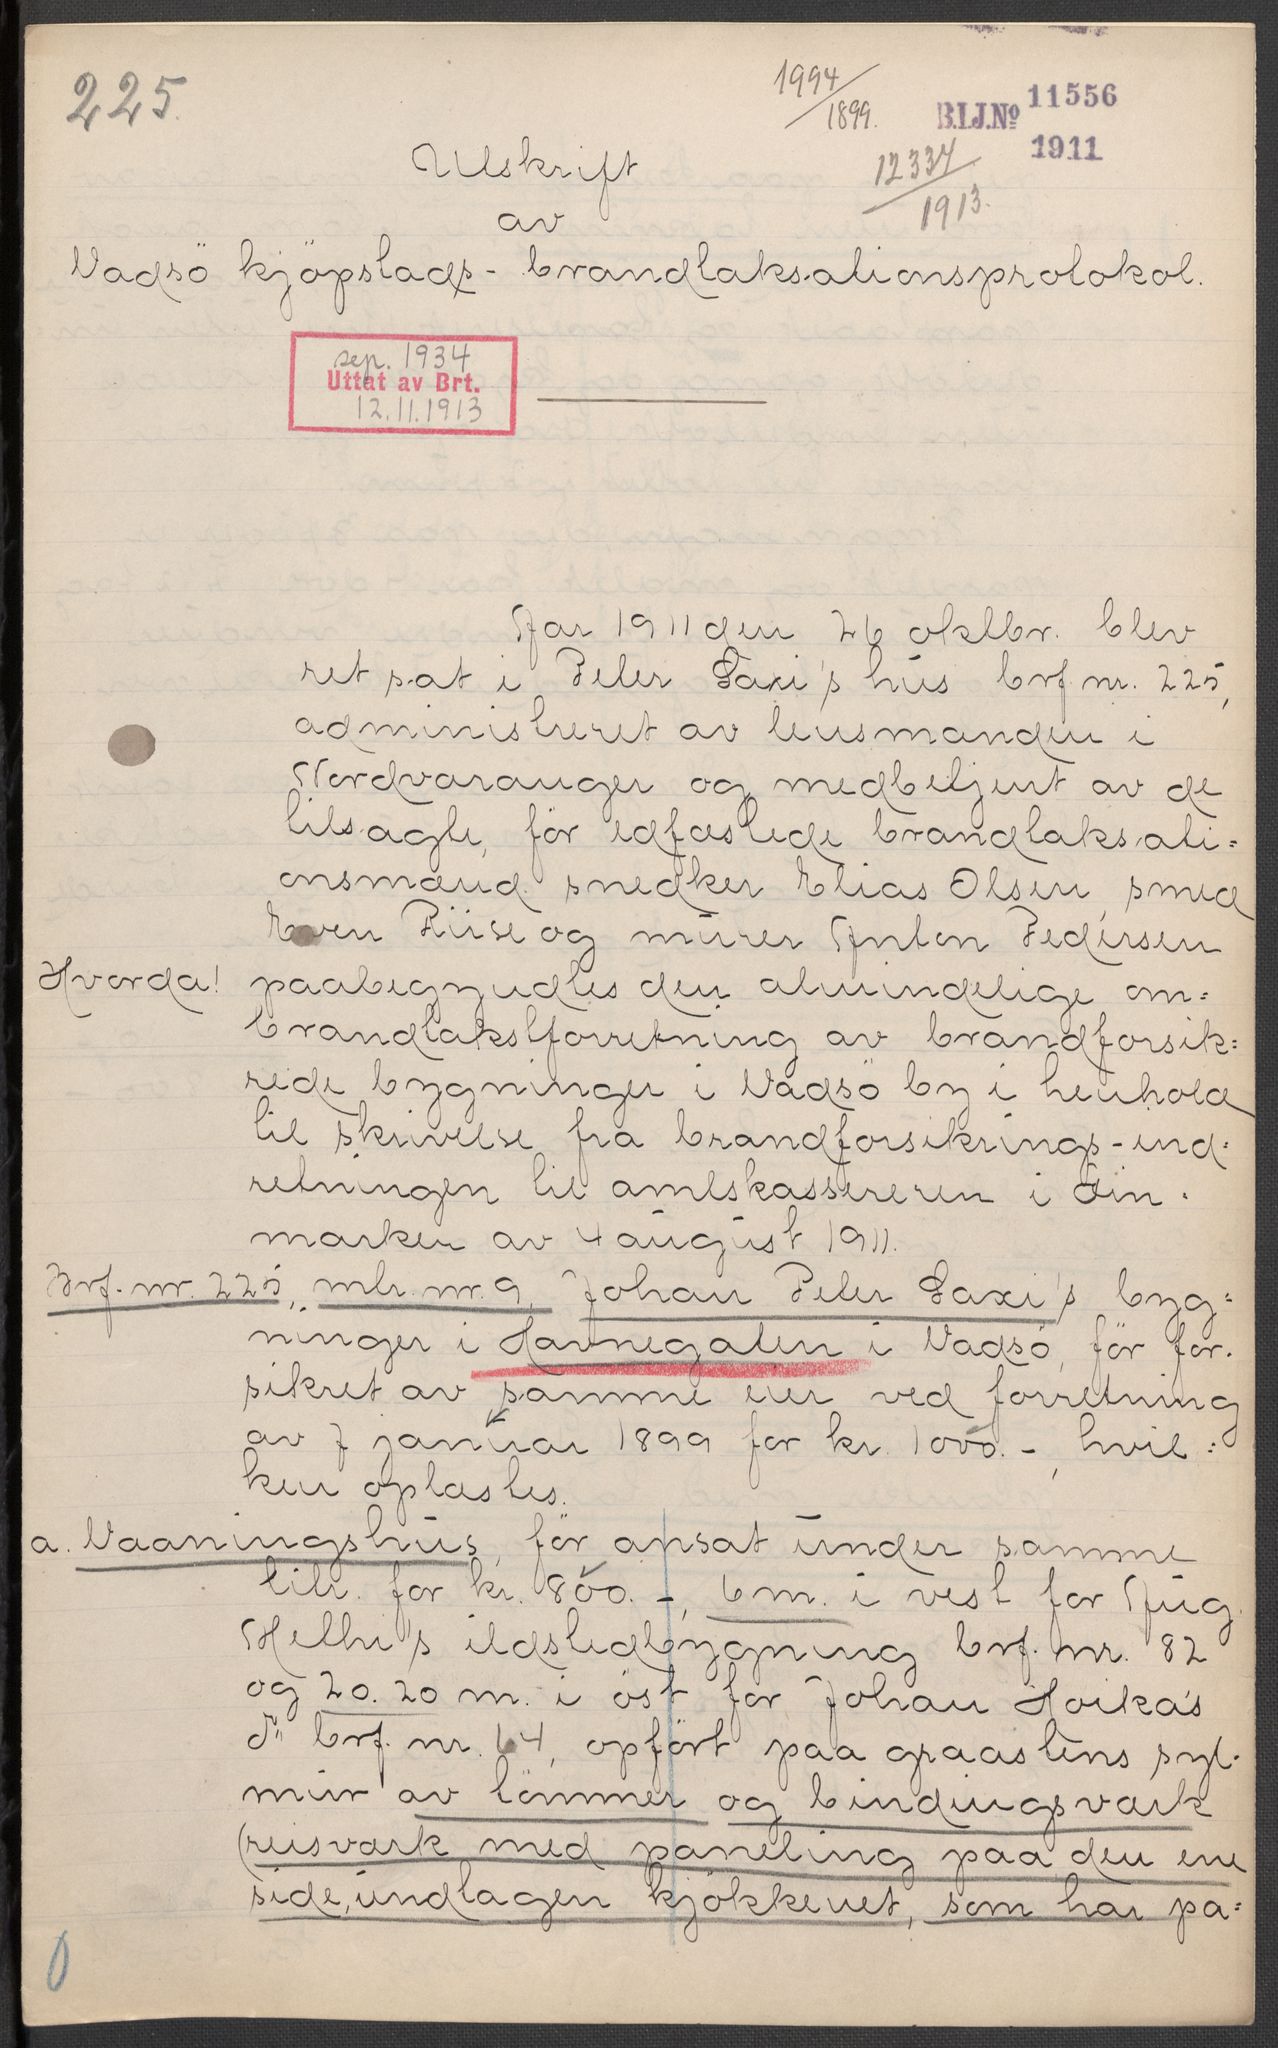 225.
1994
1899.
B.I.J.Nº 11556
1911
12334
1913.
Utskrift
av
Vadsö kjöpstads- brandtaksationsprotokol.
sep. 1934
Uttat av Brt.
12.11.1913
Aar 1911 den 26 oktbr. blev
ret sat i Peter Saxi's hus brf. nr. 225,
administreret av lensmanden i
Nordvaranger og medbetjent av de
tilsagte, för edfæstede brandtaksati=
onsmænd snedker Elias Olsen, smed
Even Riise og murer Anton Pedersen
Hvorda! paabegyndtes den almindelige om=
brandtakstforretning av brandforsik=
rede bygninger i Vadsö by i henhold
til skrivelse fra brandforsikrings-ind=
retningen til amtskassereren i Fin=
marken av 4 august 1911.
Brf. nr. 225, mtr. nr. 9, Johan Peter Saxi's byg=
ninger i Havnegaten i Vadsö, för for=
sikret av samme eier ved forretning
av 7 januar 1899 for kr. 1000.-, hvil=
ken oplæstes.
a. Vaaningshus, för ansat under samme
litr. for kr. 800.-, 6 m. i vest for Aug.
Helli's ildstedbygning brf. nr. 82
og 20.20 m. i öst for Johan Hoika's
do brf. nr. 64, opfört paa graastens syl=
mur av tömmer og bindingsværk
(reisværk med paneling paa den ene
side, undtagen kjökkenet, som har pa=